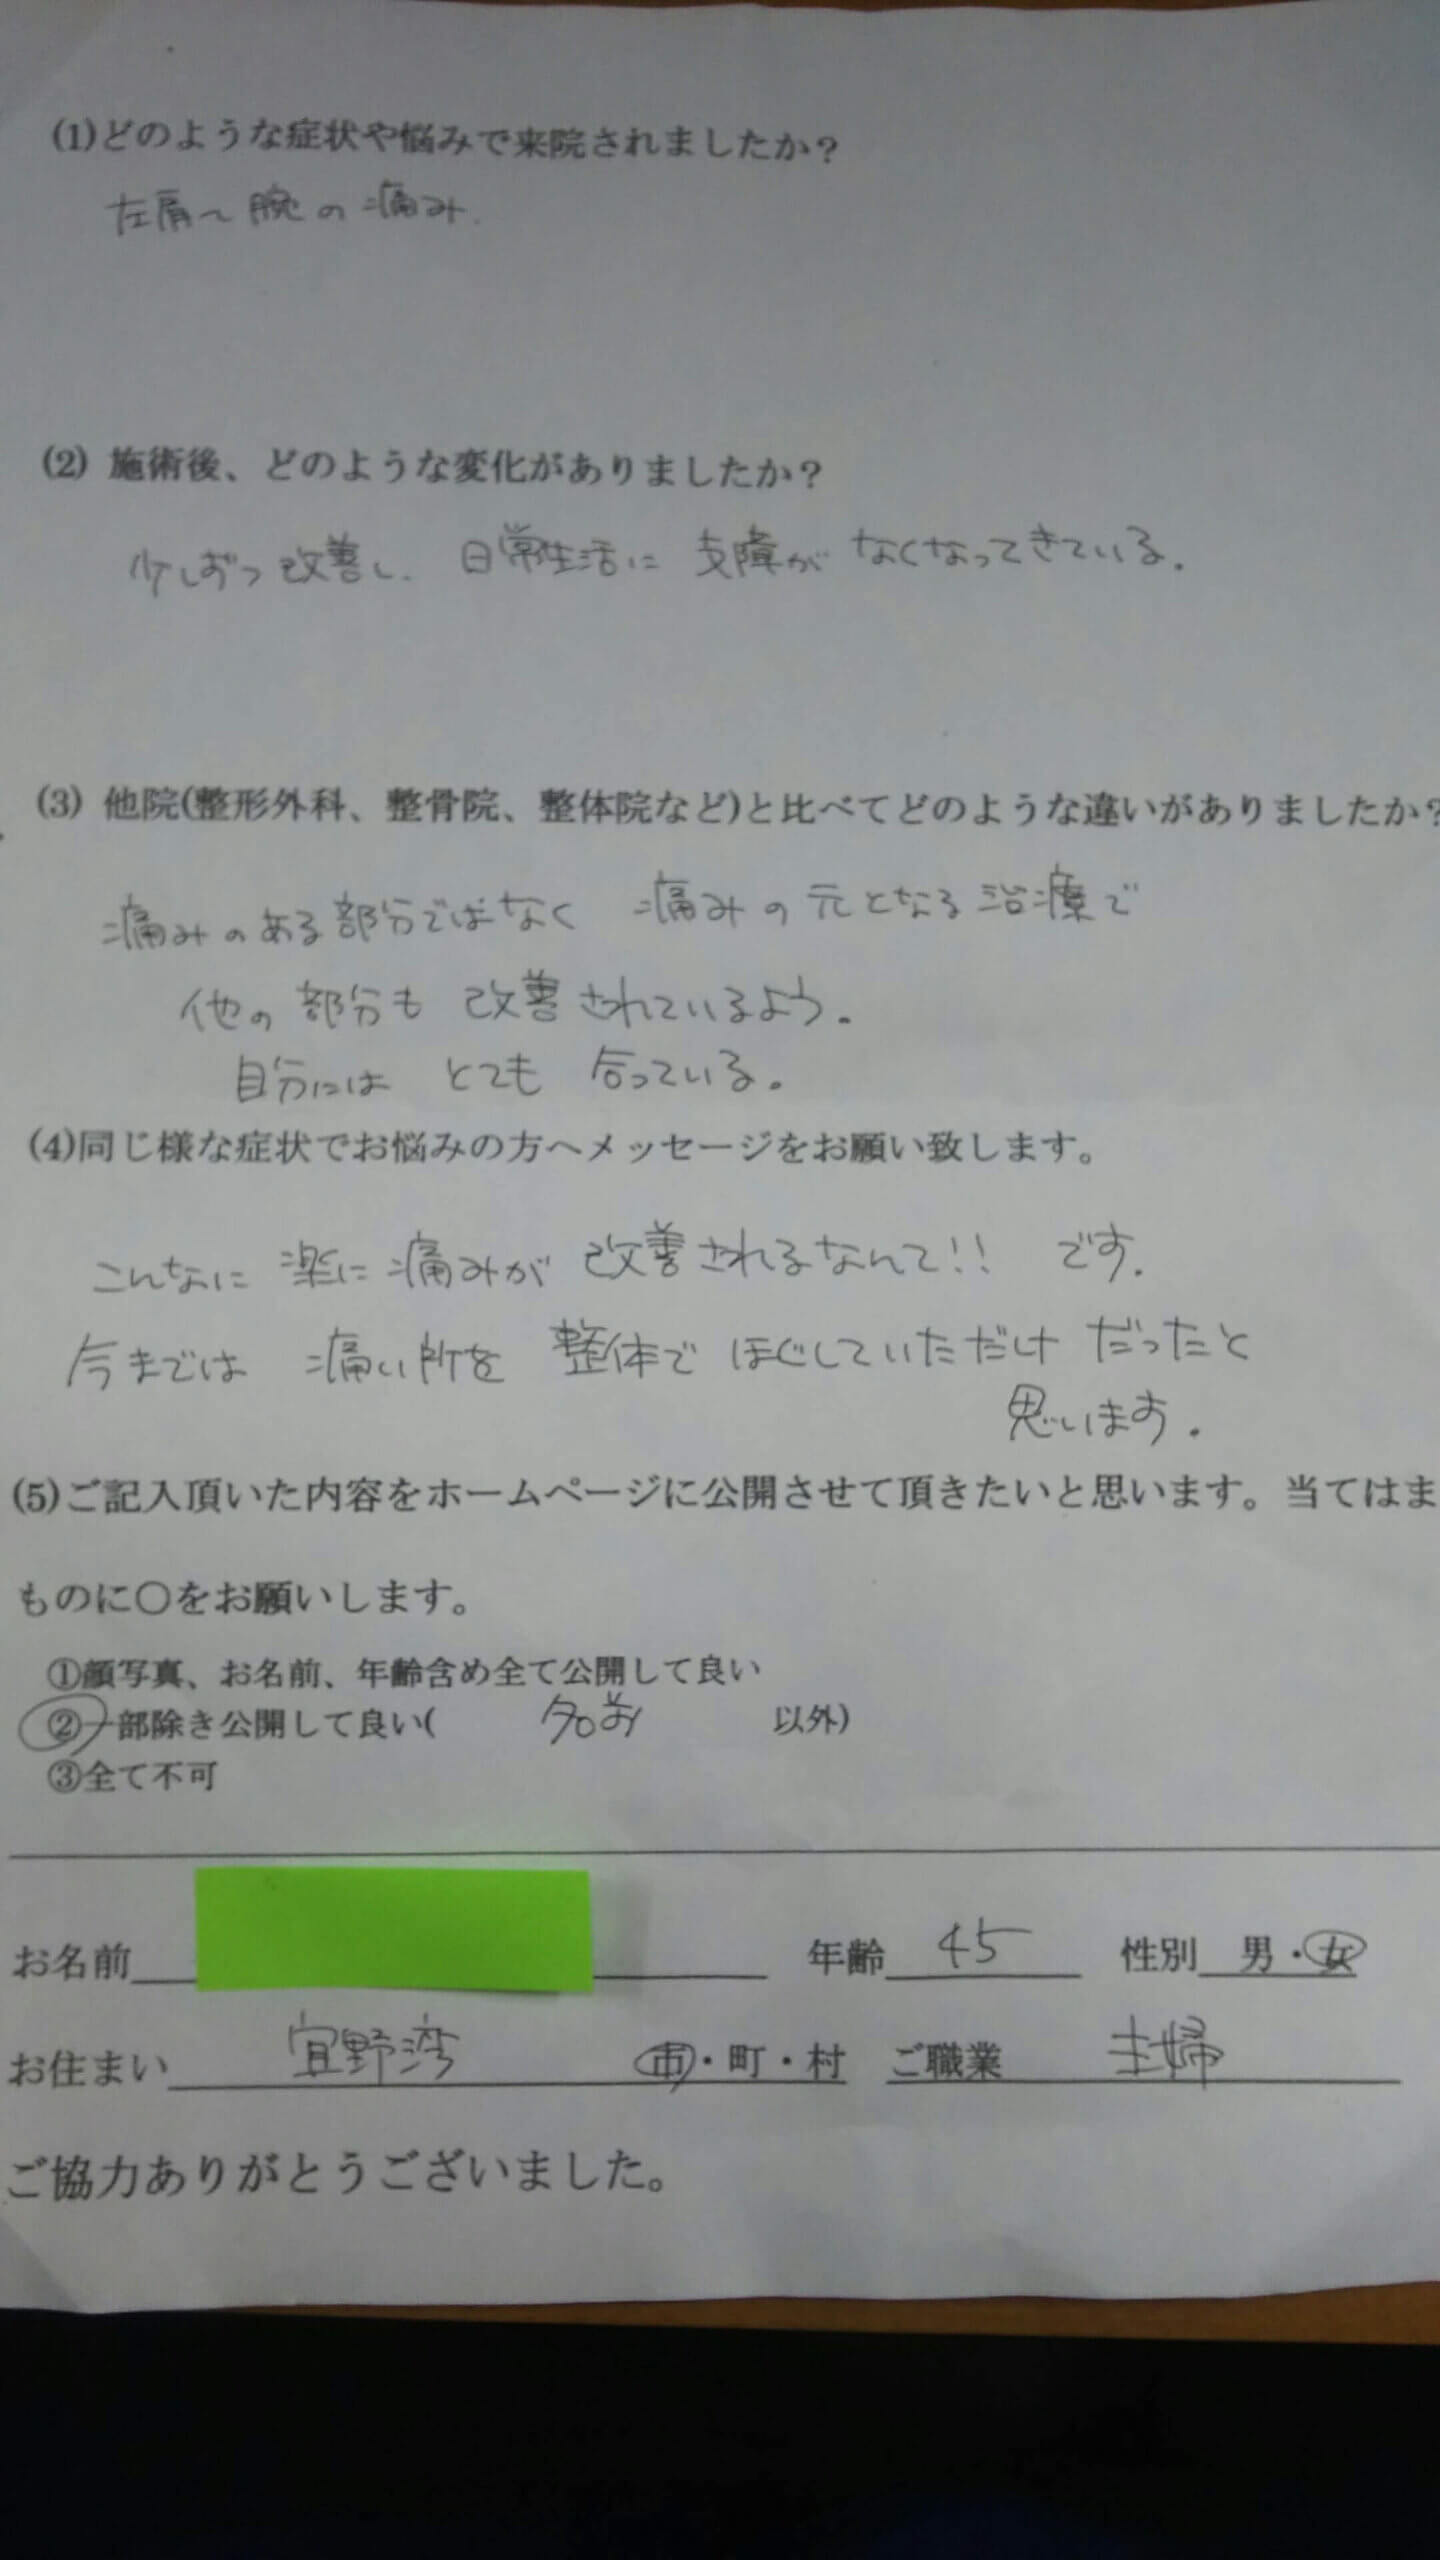 (1)どのような症状や悩みで来院されましたか?
左肩〜腕の痛み.
(2) 施術後、どのような変化がありましたか?
少しずつ改善し、日常生活に 支障が なくなってきている。
(3) 他院(整形外科、整骨院、整体院など)と比べてどのような違いがありましたか?
痛みのある部分ではなく 痛みの元となる治療で
他の部分も 改善されているよう。
自分には とても 合っている。
(4)同じ様な症状でお悩みの方へメッセージをお願い致します。
こんなに 楽に痛みが 改善されるなんて!! です.
今までは 痛い所を 整体で ほぐしていただだけ だったと
思います.
(5)ご記入頂いた内容をホームページに公開させて頂きたいと思います。当てはま
ものに〇をお願いします。
①顔写真、お名前、年齢含め全て公開して良い
②一部除き公開して良い( 名前 以外)
③全て不可
お名前 年齢 45 性別 男・女
お住まい 宜野湾 市・町・村 ご職業 主婦
ご協力ありがとうございました。